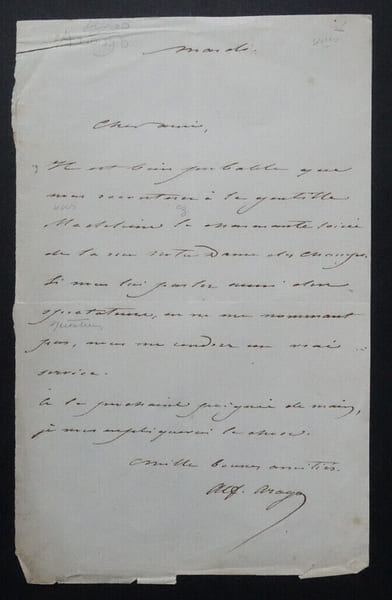 mardi.
Cher ami,
Il est bien probable que
vous raconterez à la gentille
Madeleine la charmante soirée
de la rue Notre Dame des Champs.
Si vous lui parlez aussi des
spectateurs, en ne me nommant
pas, vous me rendrez un vrai
service.
à la prochaine poignée de main,
je vous expliquerai la chose.
Mille bonnes amitiés.
Alf. Arago